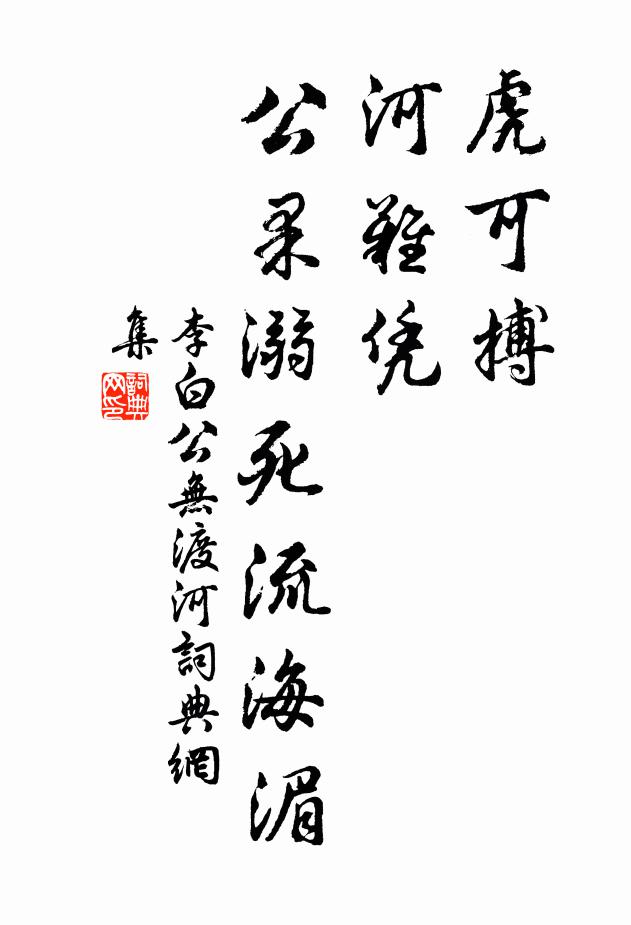 虎可搏
河難凭
公果溺死流海湄
李白公無渡河詞典網
集
詞典网印